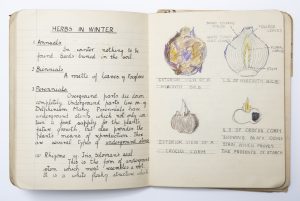 HERBS IN WINTER.
1. Annuals
In winter nothing to be
found seeds buried in the soil.
2. Biennials
A rosette of leaves eg Foxglove
3. Perennials
Overground parts die down
completely. Underground parts live on eg
Delphinium. Many Perennials have
underground stems which not only
a food supply for the plants
future growth but also provides the
means of reproduction. There
are several types of underground stems
a) Rhizome eg Iris, Solomon's seal
This is the form of underground
stem which most resembles a root.
It is a white fleshy structure which
FOLIAGE LEAVES
EXTERIOR VIEW OF A
HYACINTH BULB
L.S. OF HYACINTH BULB.
EXTERIOR VIEW OF A
CROCUS CORM.
L.S. OF CROCUS CORM
SHOWING BLACK IODINE
STAIN WHICH PROVES
THE PRESENCE OF STARCH